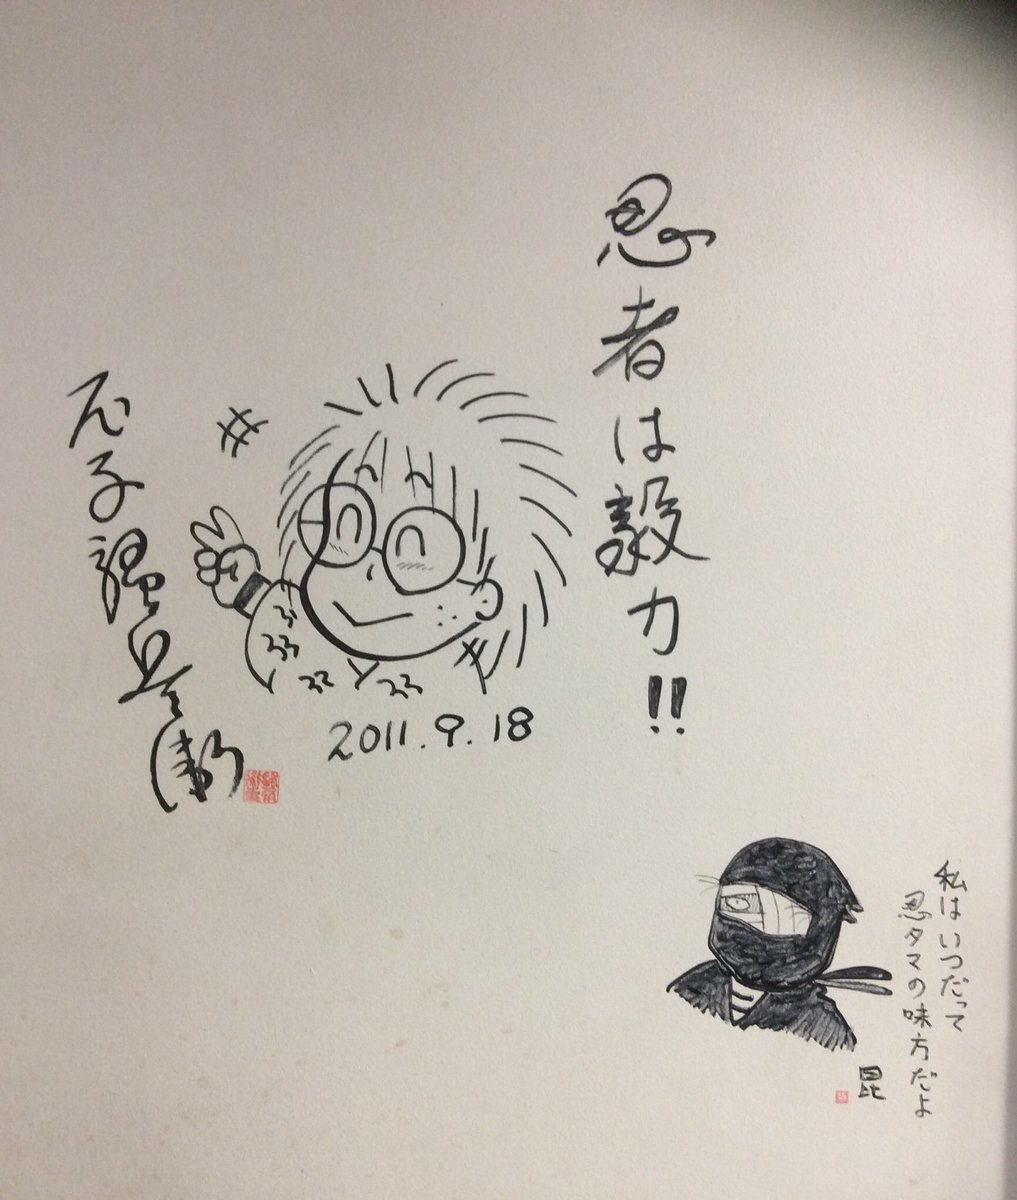 忍者は毅力!!
尼子騒兵衛
2011.9.18
私はいつだって
忍タマの味方だよ
昆